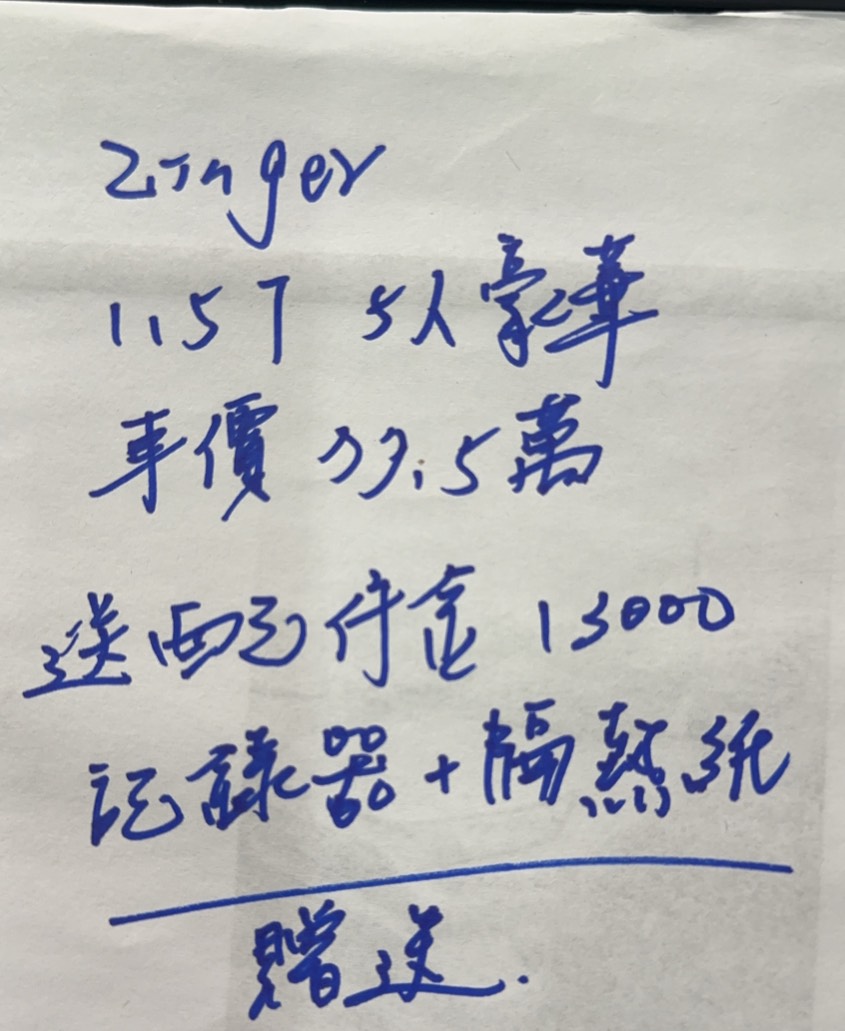 Zinger
1.5T 5人豪華
車價 77.5萬
送配件金 13000
記錄器+隔熱紙
贈送.